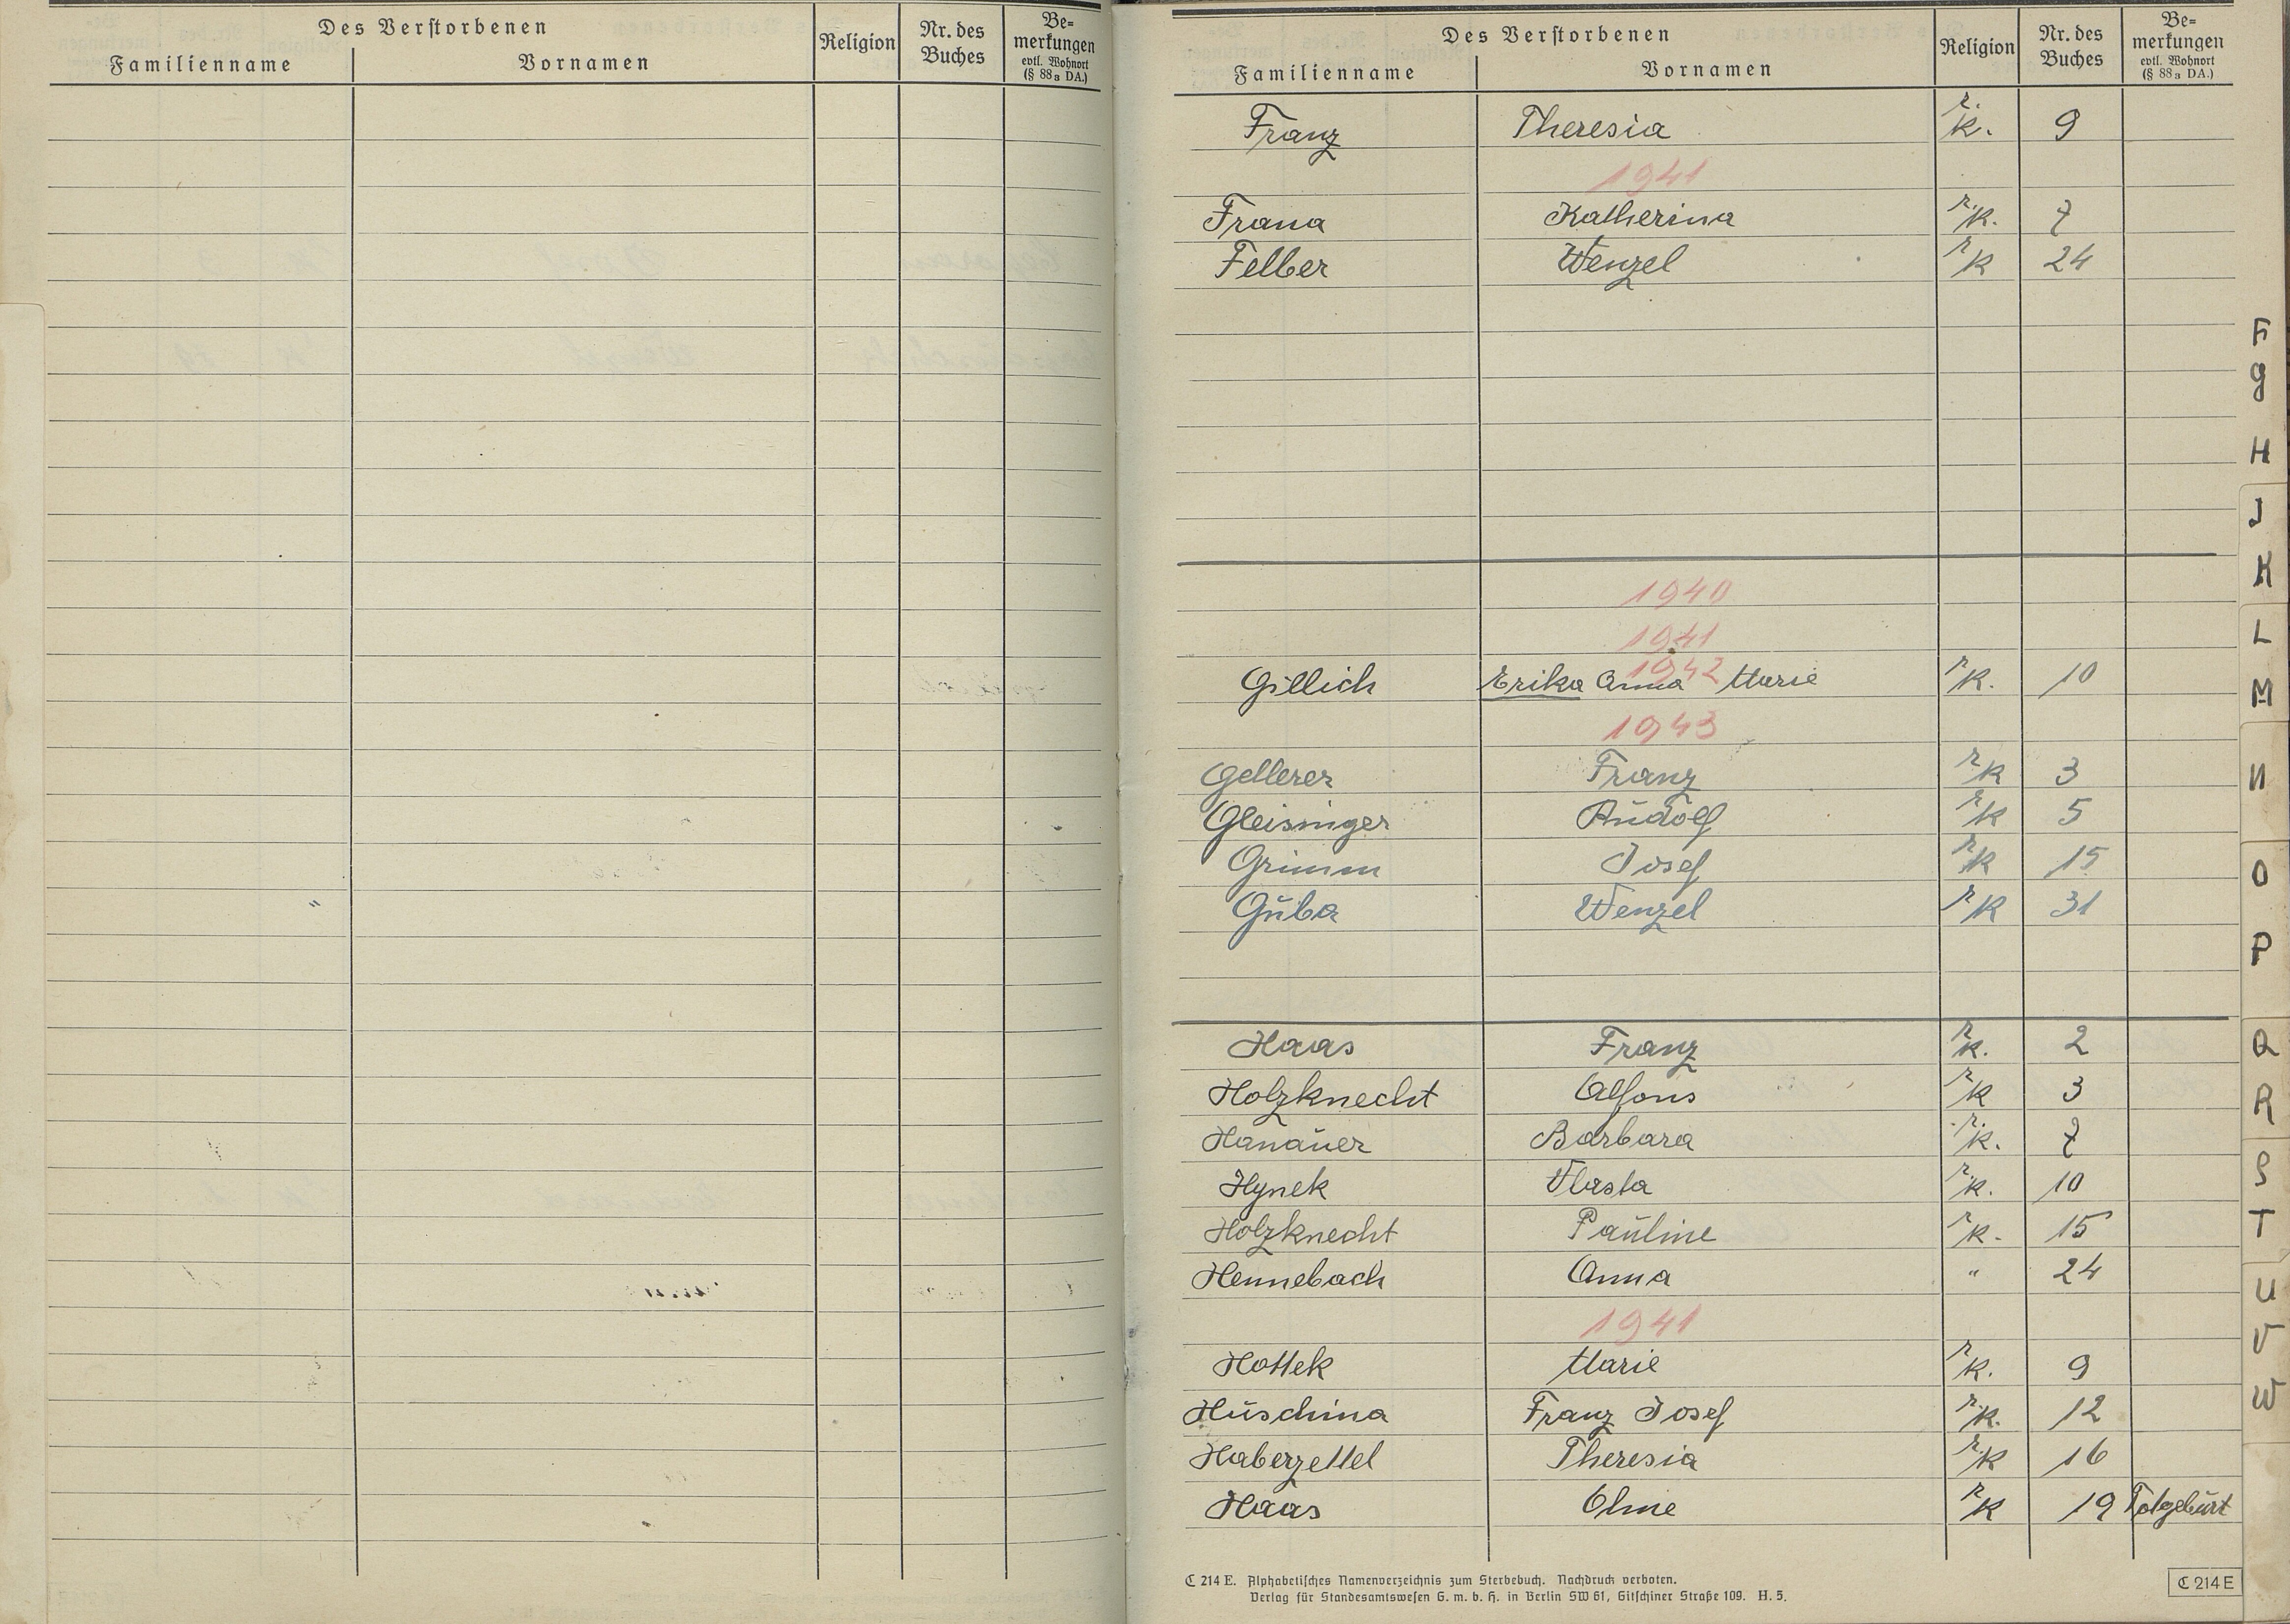 Des Verstorbenen
Familienname Vornamen Religion Nr. des Buches Bemerkungen evtl. Wohnort (§ 88a DA.)
Des Verstorbenen
Familienname Vornamen Religion Nr. des Buches Bemerkungen evtl. Wohnort (§ 88a DA.)
Franz Theresia r. k. 9
1941
Frana Katherina r. k. 7
Felber Wenzel r k 24
1940
1941
1942
Gillich Erika Anna Marie r k. 10
1943
Gellerer Franz r k 3
Gleisinger Rudolf r k 5
Grimm Josef r k 15
Guba Wenzel r k 31
Haas Franz r k. 2
Holzknecht Alfons r k 3
Hanauer Barbara r. k. 7
Hynek Vlasta r. k. 10
Holzknecht Pauline r k. 15
Hennebach Anna " 24
1941
Hottek Marie r k. 9
Huschina Franz Josef r. k. 12
Haberzettel Theresia r. k 16
Haas Ohne r k 19 Totgeburt
F
G
H
J
K
L
M
N
O
P
Q
R
S
T
U
V
W
C 214 E. Alphabetisches Namenverzeichnis zum Sterbebuch. Nachdruck verboten.
Verlag für Standesamtswesen G. m. b. H. in Berlin SW 61, Gitschiner Straße 109. H. 5.
C 214 E